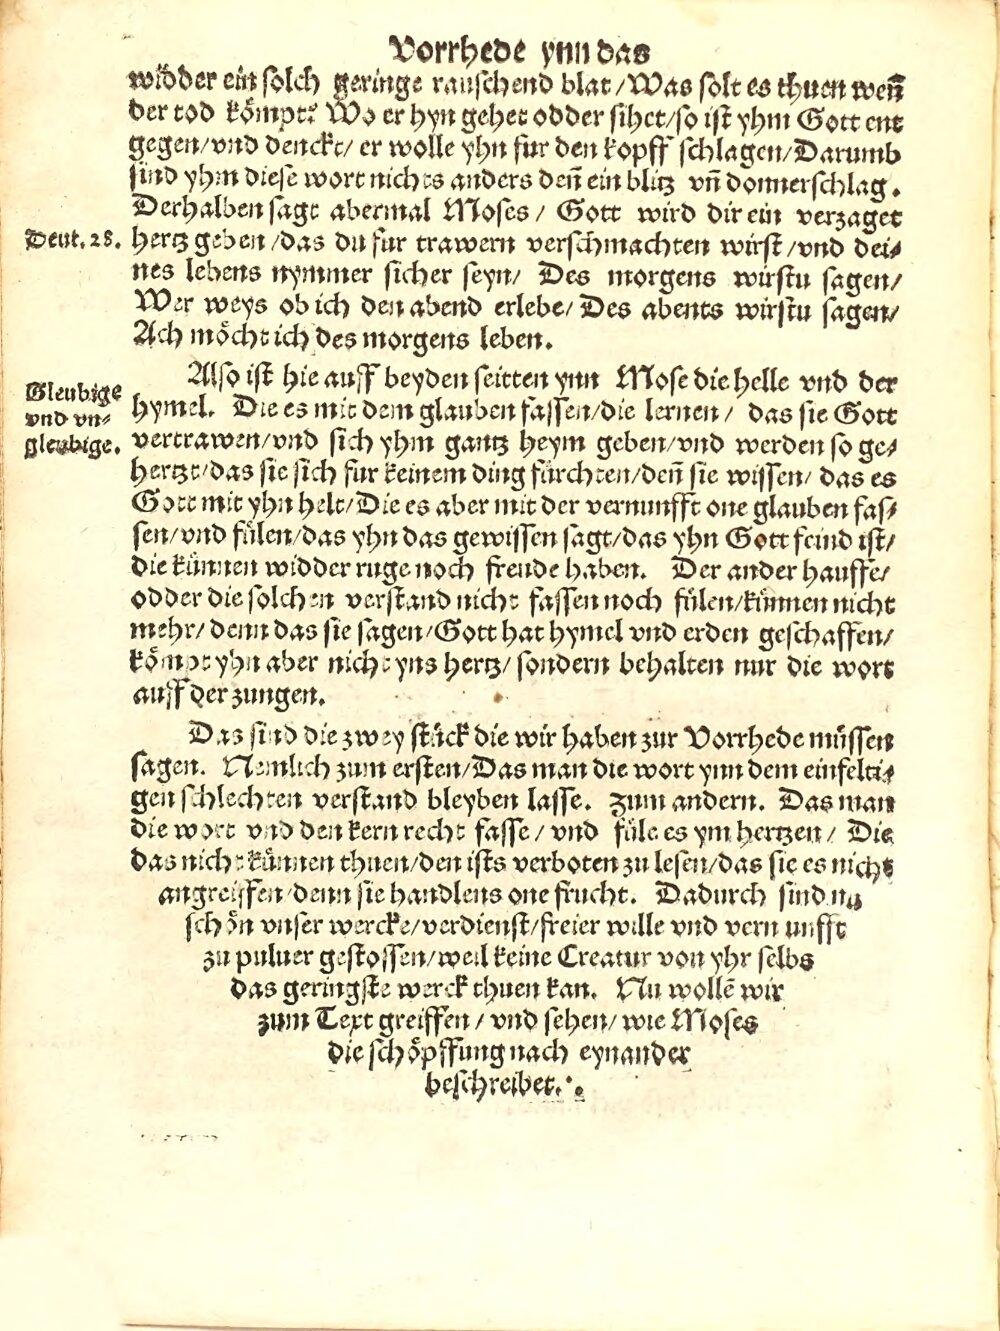 Vorrhede ynn das
widder ein solch geringe rauschend blat/Was solt es thuen weñ
der tod kömpt? Wo er hyn gehet odder sihet/so ist yhm Gott ent
gegen/vnd denckt/ er wolle yhn fur den kopff schlagen/Darumb
sind yhm diese wort nichts anders deñ ein blitz vñ donnerschlag.
Derhalben sagt abermal Moses/ Gott wird dir ein verzaget
Deut.28.
hertz geben/das du fur trawern verschmachten wirst/vnd dei⸗
nes lebens nymmer sicher seyn/ Des morgens wirstu sagen/
Wer weys ob ich den abend erlebe/Des abents wirstu sagen/
Ach möcht ich des morgens leben.
Also ist hie auff beyden seitten ynn Mose die helle vnd der
Gleubige
vnd vn⸗
gleubige.
hymel. Die es mit dem glauben fassen/die lernen/ das sie Gott
vertrawen/vnd sich yhm gantz heym geben/vnd werden so ge⸗
hertzt/das sie sich fur keinem ding fürchten/deñ sie wissen/ das es
Gott mit yhn helt/Die es aber mit der vernunfft one glauben fas⸗
sen/vnd fülen/das yhn das gewissen sagt/das yhn Gott feind ist/
die künnen widder ruge noch freude haben. Der ander hauffe/
odder die solchen verstand nicht fassen noch fülen/künnen nicht
mehr/denn das sie sagen/Gott hat hymel vnd erden geschaffen/
kömpt yhn aber nicht yns hertz/sondern behalten nur die wort
auff der zungen.
Das sind die zwey stück die wir haben zur Vorrhede müssen
sagen. Nemlich zum ersten/Das man die wort ynn dem einfelti⸗
gen schlechten verstand bleyben lasse. Zum andern. Das man
die wort vnd den kern recht fasse/ vnd füle es ym hertzen/ Die
das nicht künnen thuen/den ists verboten zu lesen/das sie es nicht
angreiffen/denn sie handlens one frucht. Dadurch sind nu
schön vnser wercke/verdienst/freier wille vnd vernunfft
zu puluer gestossen/weil keine Creatur von yhr selbs
das geringste werck thuen kan. Nu wollē wir
zum Text greiffen/ vnd sehen/ wie Moses
die schöpffung nach eynander
beschreibet.